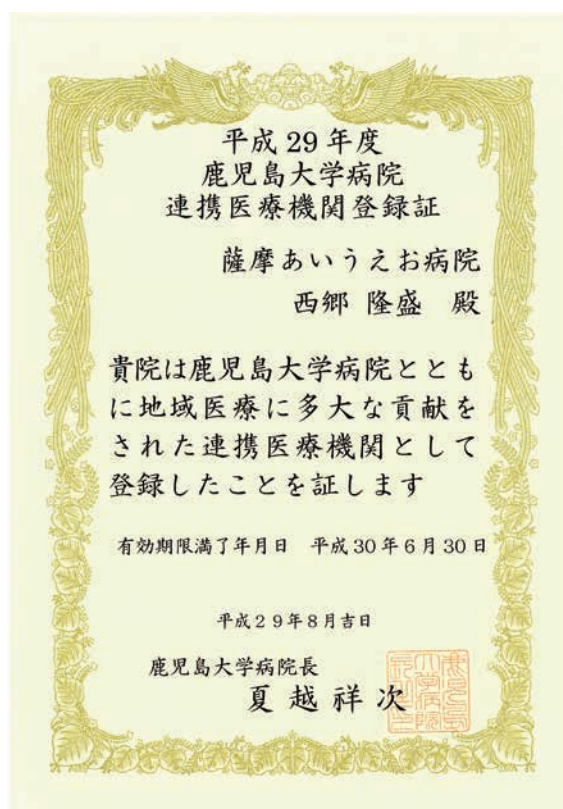 平成 29 年度
鹿児島大学病院
連携医療機関登録証
薩摩あいうえお病院
西郷 隆盛 殿
貴院は鹿児島大学病院ととも
に地域医療に多大な貢献を
された連携医療機関として
登録したことを証します
有効期限満了年月日 平成30年6月30日
平成29年8月吉日
鹿児島大学病院長
夏越祥次